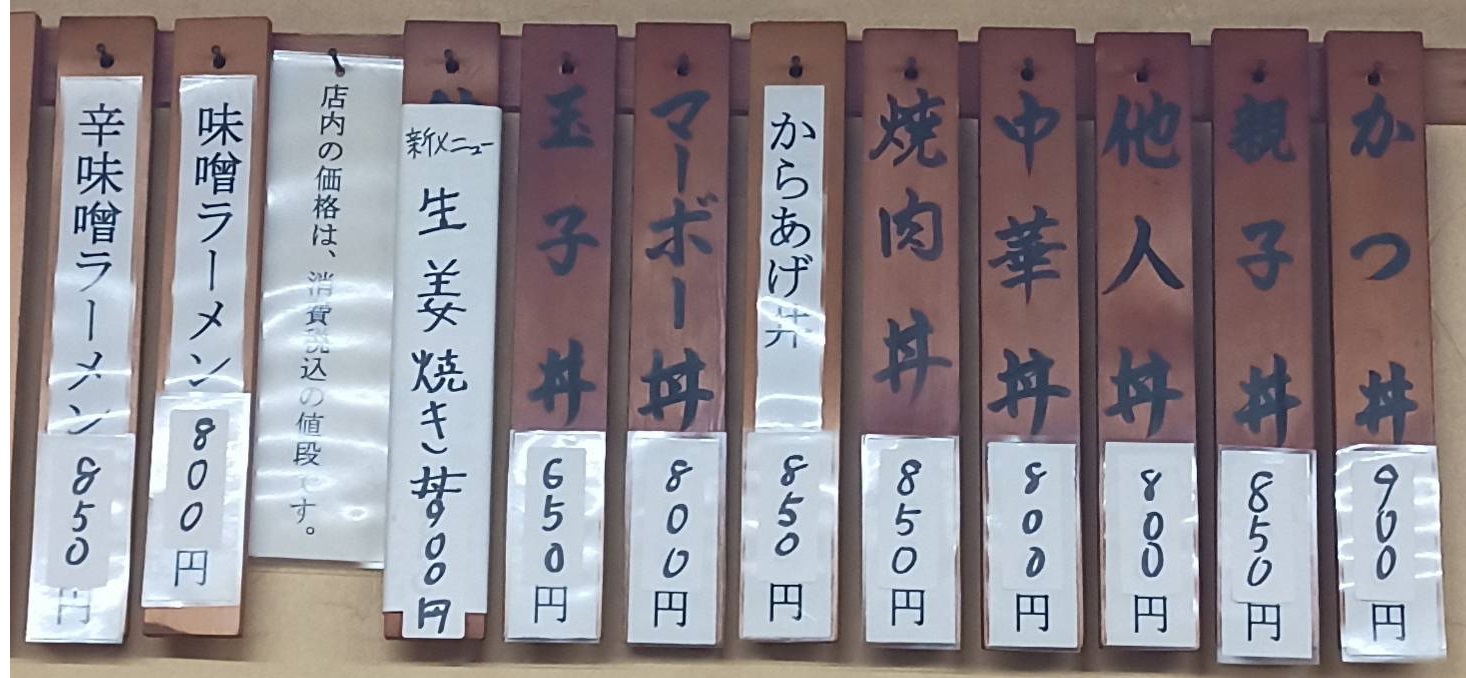 かつ丼
900円
親子丼
850円
他人丼
800円
中華丼
800円
焼肉丼
850円
からあげ丼
850円
マーボー丼
800円
玉子丼
650円
新メニュー
生姜焼き丼900円
店内の価格は、消費税込の値段です。
味噌ラーメン
800円
辛味噌ラーメン
850円